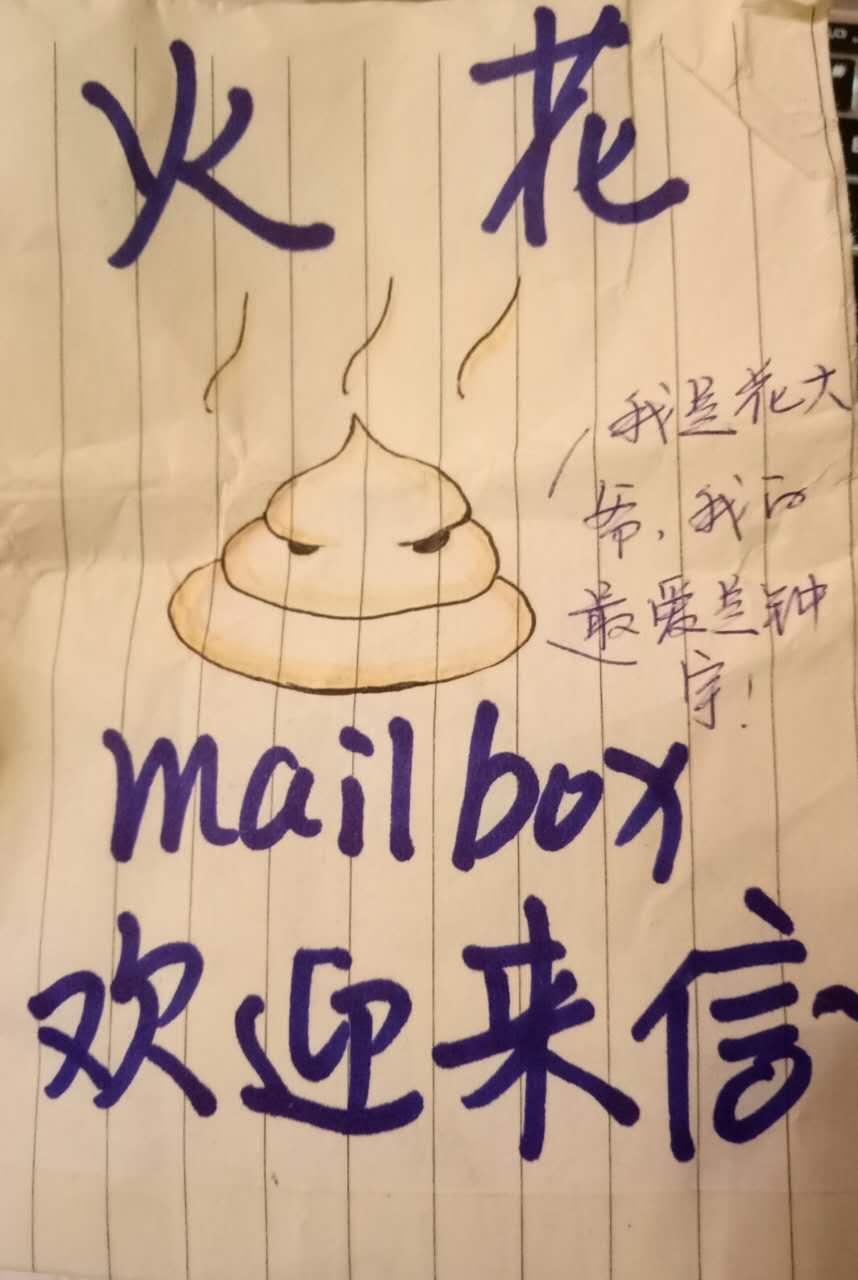 火花
我是花大
爷，我的
最爱是钟
宇！
mailbox
欢迎来信~